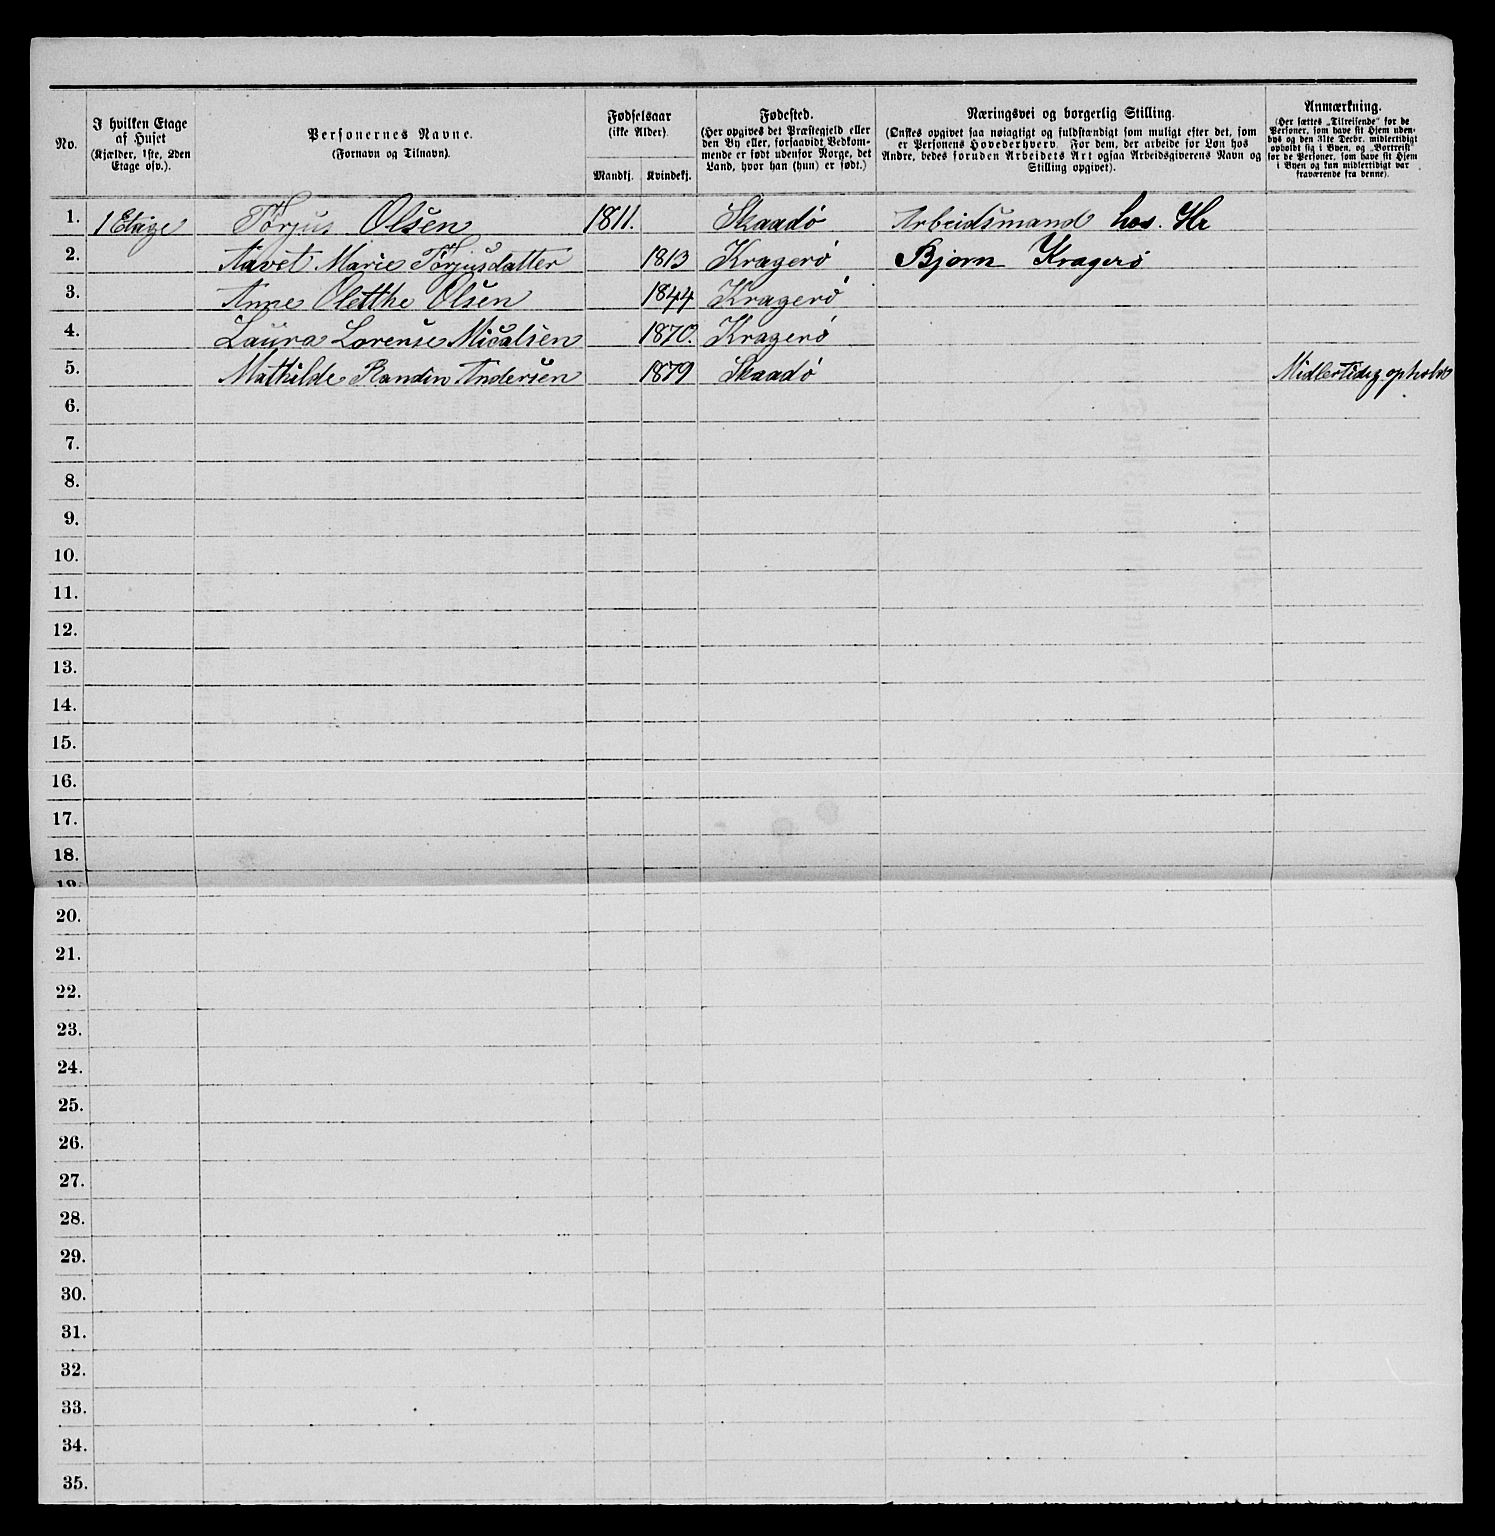 No.
I hvilken Etage af Huset (Kjælder, 1ste, 2den Etage osv.).
Personernes Navne. (Fornavn og Tilnavn).
Fødselsaar (ikke Alder). Mandkj. Kvindekj.
Fødested. (Her opgives det Præstegjeld eller den By eller, forsaavidt Vedkommende er født udenfor Norge, det Land, hvor han (hun) er født.)
Næringsvei og borgerlig Stilling. (Ønskes opgivet saa nøiagtigt og fuldstændigt som muligt efter det, som er Personens Hovederhverv. For dem, der arbeide for Løn hos Andre, bedes foruden Arbeidets Art ogsaa Arbeidsgiverens Navn og Stilling opgivet).
Anmærkning. (Her sættes „Tilreisende“ for de Personer, som have sit Hjem udenbys og den 31te Decbr. midlertidigt opholdt sig i Byen, og „Bortreist“ for de Personer, som have sit Hjem i Byen og kun midlertidigt var fraværende fra denne).
1. 1 Etage Tørjus Olsen 1811. Skaadø Arbeidsmand hos. Hr
2. Marie Tørjusdatter 1813 Kragerø Bjørn Kragerø
3. Anne Oletthe Olsen 1844 Kragerø
4. Laura Lorense Micalsen 1870. Kragerø
5. Mathilde Randin Andersen 1879 Skaadø Midlertidig ophold
6.
7.
8.
9.
10.
11.
12.
13.
14.
15.
16.
17.
18.
19.
20.
21.
22.
23.
24.
25.
26.
27.
28.
29.
30.
31.
32.
33.
34.
35.